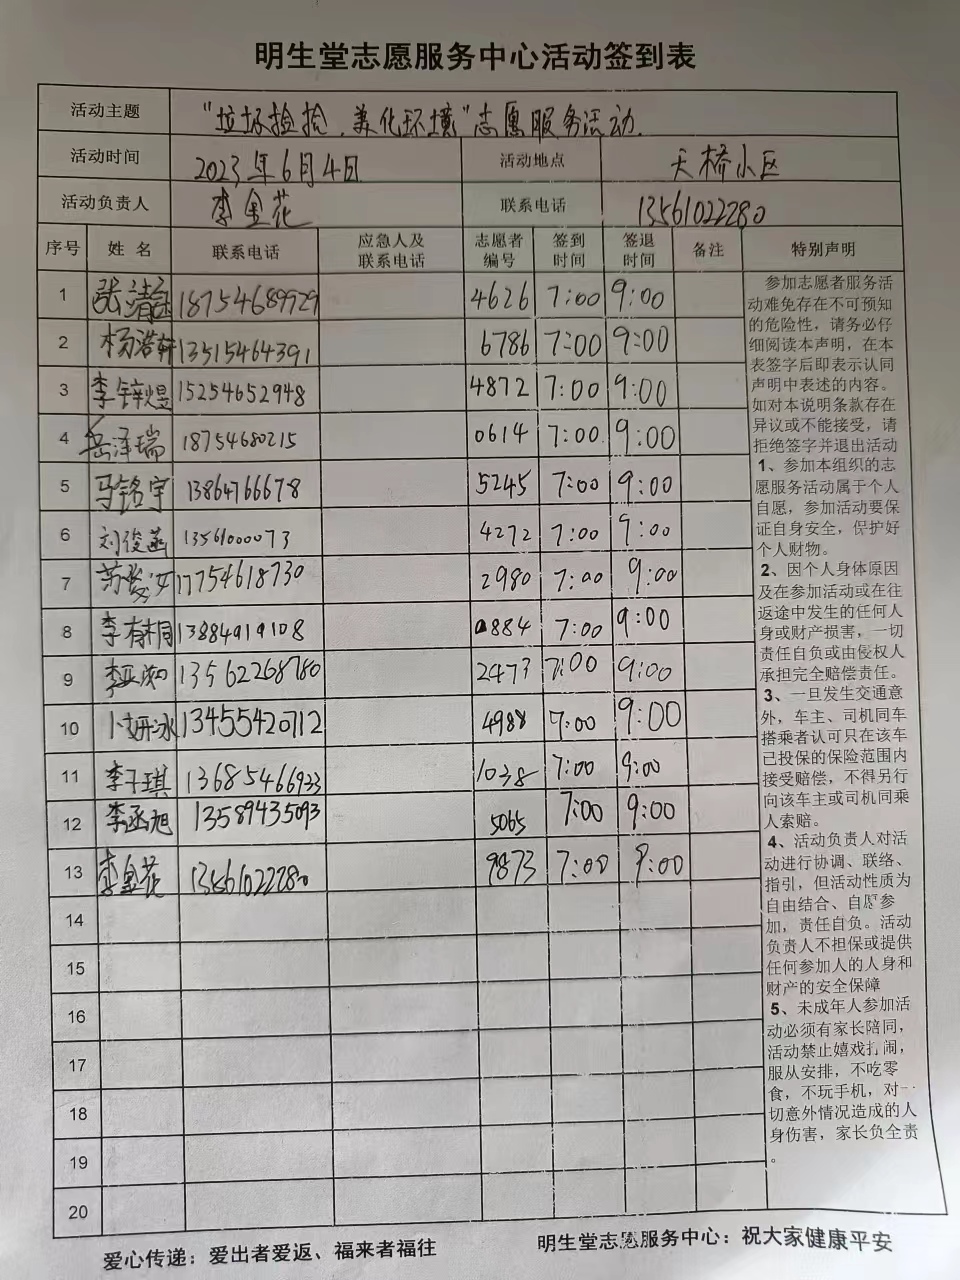 明生堂志愿服务中心活动签到表
活动主题 “垃圾捡拾、美化环境”志愿服务活动.
活动时间 2023年6月4日 活动地点 天桥小区
活动负责人 李金花 联系电话 13561022280
序号 姓名 联系电话 应急人及联系电话 志愿者编号 签到时间 签退时间 备注 特别声明
1 18754689929 4626 7:00 9:00
2 杨浩轩 13515464391 6786 7:00 9:00
3 李锌煜 15254652948 4872 7:00 9:00
4 岳泽瑞 18754680215 0614 7:00 9:00
5 马铭宇 13864766678 5245 7:00 9:00
6 刘俊菡 13561000073 4272 7:00 9:00
7 17754618730 2980 7:00 9:00
8 李有桐 13884919108 0884 7:00 9:00
9 13562268780 2473 7:00 9:00
10 13455420712 4988 7:00 9:00
11 李子琪 13685466933 1038 7:00 9:00
12 李丞旭 13589435093 5065 7:00 9:00
13 李金花 13561022280 9873 7:00 9:00
14
15
16
17
18
19
20
参加志愿者服务活
动难免存在不可预知
的危险性，请务必仔
细阅读本声明，在本
表签字后即表示认同
声明中表述的内容。
如对本说明条款存在
异议或不能接受，请
拒绝签字并退出活动
1、参加本组织的志
愿服务活动属于个人
自愿，参加活动要保
证自身安全，保护好
个人财物。
2、因个人身体原因
及在参加活动或在往
返途中发生的任何人
身或财产损害，一切
责任自负或由侵权人
承担完全赔偿责任。
3、一旦发生交通意
外，车主、司机同车
搭乘者认可只在该车
已投保的保险范围内
接受赔偿，不得另行
向该车主或司机同乘
人索赔。
4、活动负责人对活
动进行协调、联络、
指引，但活动性质为
自由结合、自愿参
加，责任自负。活动
负责人不担保或提供
任何参加人的人身和
财产的安全保障
5、未成年人参加活
动必须有家长陪同，
活动禁止嬉戏打闹，
服从安排，不吃零
食，不玩手机，对一
切意外情况造成的人
身伤害，家长负全责
。
爱心传递：爱出者爱返、福来者福往 明生堂志愿服务中心：祝大家健康平安